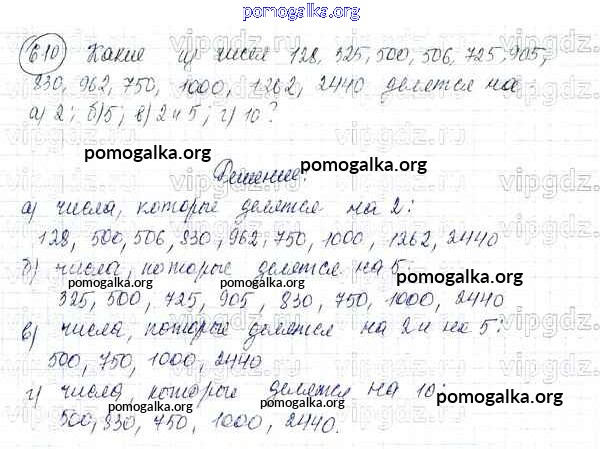 pomogalka.org
610 Какие из чисел 128, 325, 500, 506, 725, 905,
830, 962, 750, 1000, 1262, 2440 делятся на
а) 2; б) 5; в) 2 и 5; г) 10?
pomogalka.org pomogalka.org
Решение:
а) числа, которые делятся на 2:
128, 500, 506, 830, 962, 750, 1000, 1262, 2440
б) числа, которые делятся на 5:
pomogalka.org
325, 500, 725, 905, 830, 750, 1000, 2440
pomogalka.org
в) числа, которые делятся на 2 и на 5:
500, 750, 1000, 2440
pomogalka.org
г) числа, которые делятся на 10:
pomogalka.org
500, 830, 750, 1000, 2440.
pomogalka.org pomogalka.org
vipgdz.ru